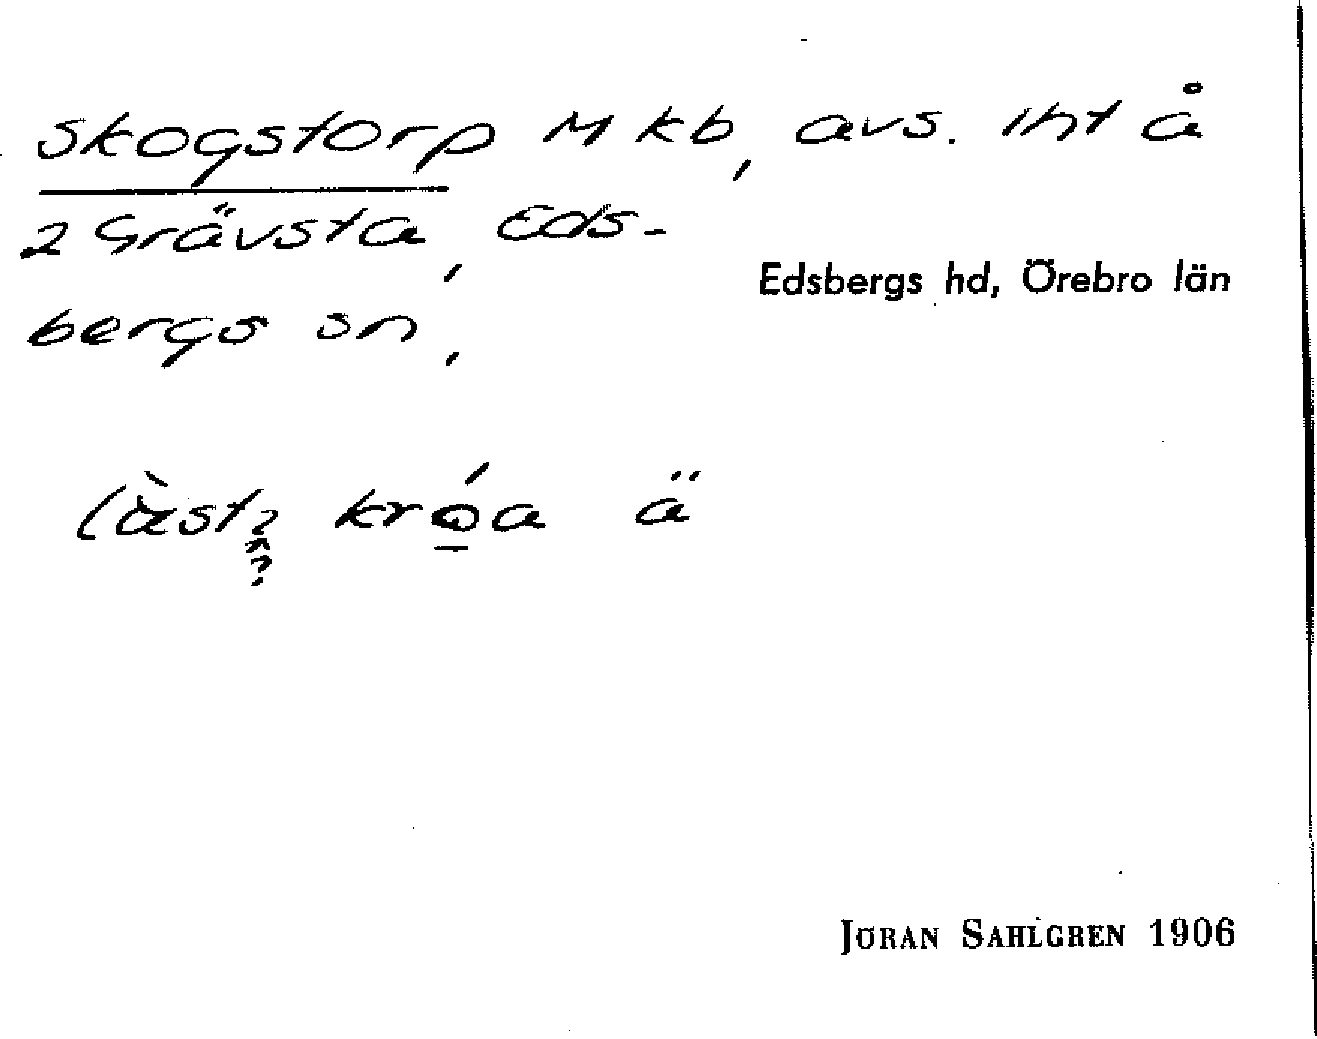 Skogstorp M kb, avs. iht å
2 Grävsta, Eds-
Edsbergs hd, Örebro län
bergs sn,
króa ä
JÖRAN SAHLGREN 1906